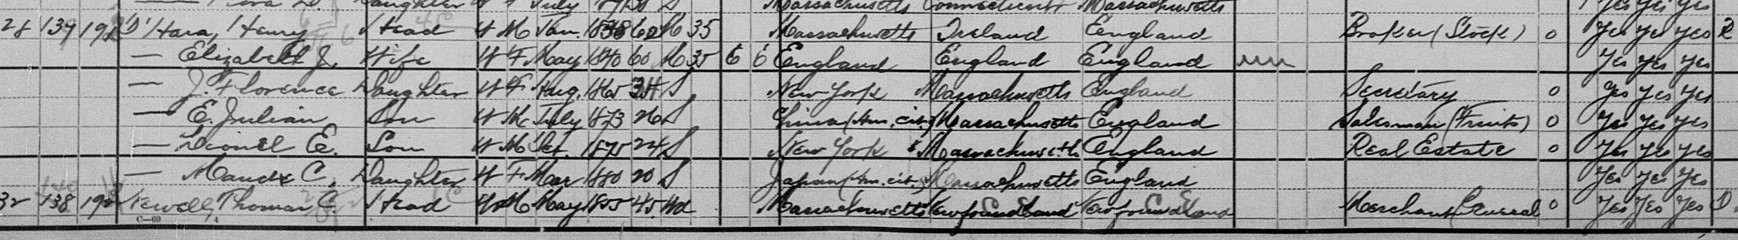 Daughter W F July S Massachusetts Connecticut Massachusetts Yes Yes Yes
28 139 192 O'Hara, Henry Head W M Jan. 1838 62 M 35 Massachusetts Ireland England Broker (Stock) 0 Yes Yes Yes R
— Elizabeth J. Wife W F May 1840 60 M 35 6 6 England England England Yes Yes Yes
— J. Florence Daughter W F Aug. 1865 34 S New York Massachusetts England Secretary 0 Yes Yes Yes
— E. Julian Son W M July 1873 26 S China (Am. cit.) Massachusetts England Salesman (Fruits) 0 Yes Yes Yes
— Lionel E. Son W M 1875 24 S New York Massachusetts England Real Estate 0 Yes Yes Yes
— Maude C. Daughter W F Mar 1880 20 S Japan (Am. cit.) Massachusetts England Yes Yes Yes
32 138 Newell, Thomas Head W M May 1855 45 Wd Massachusetts Newfoundland Newfoundland Merchant General 0 Yes Yes Yes